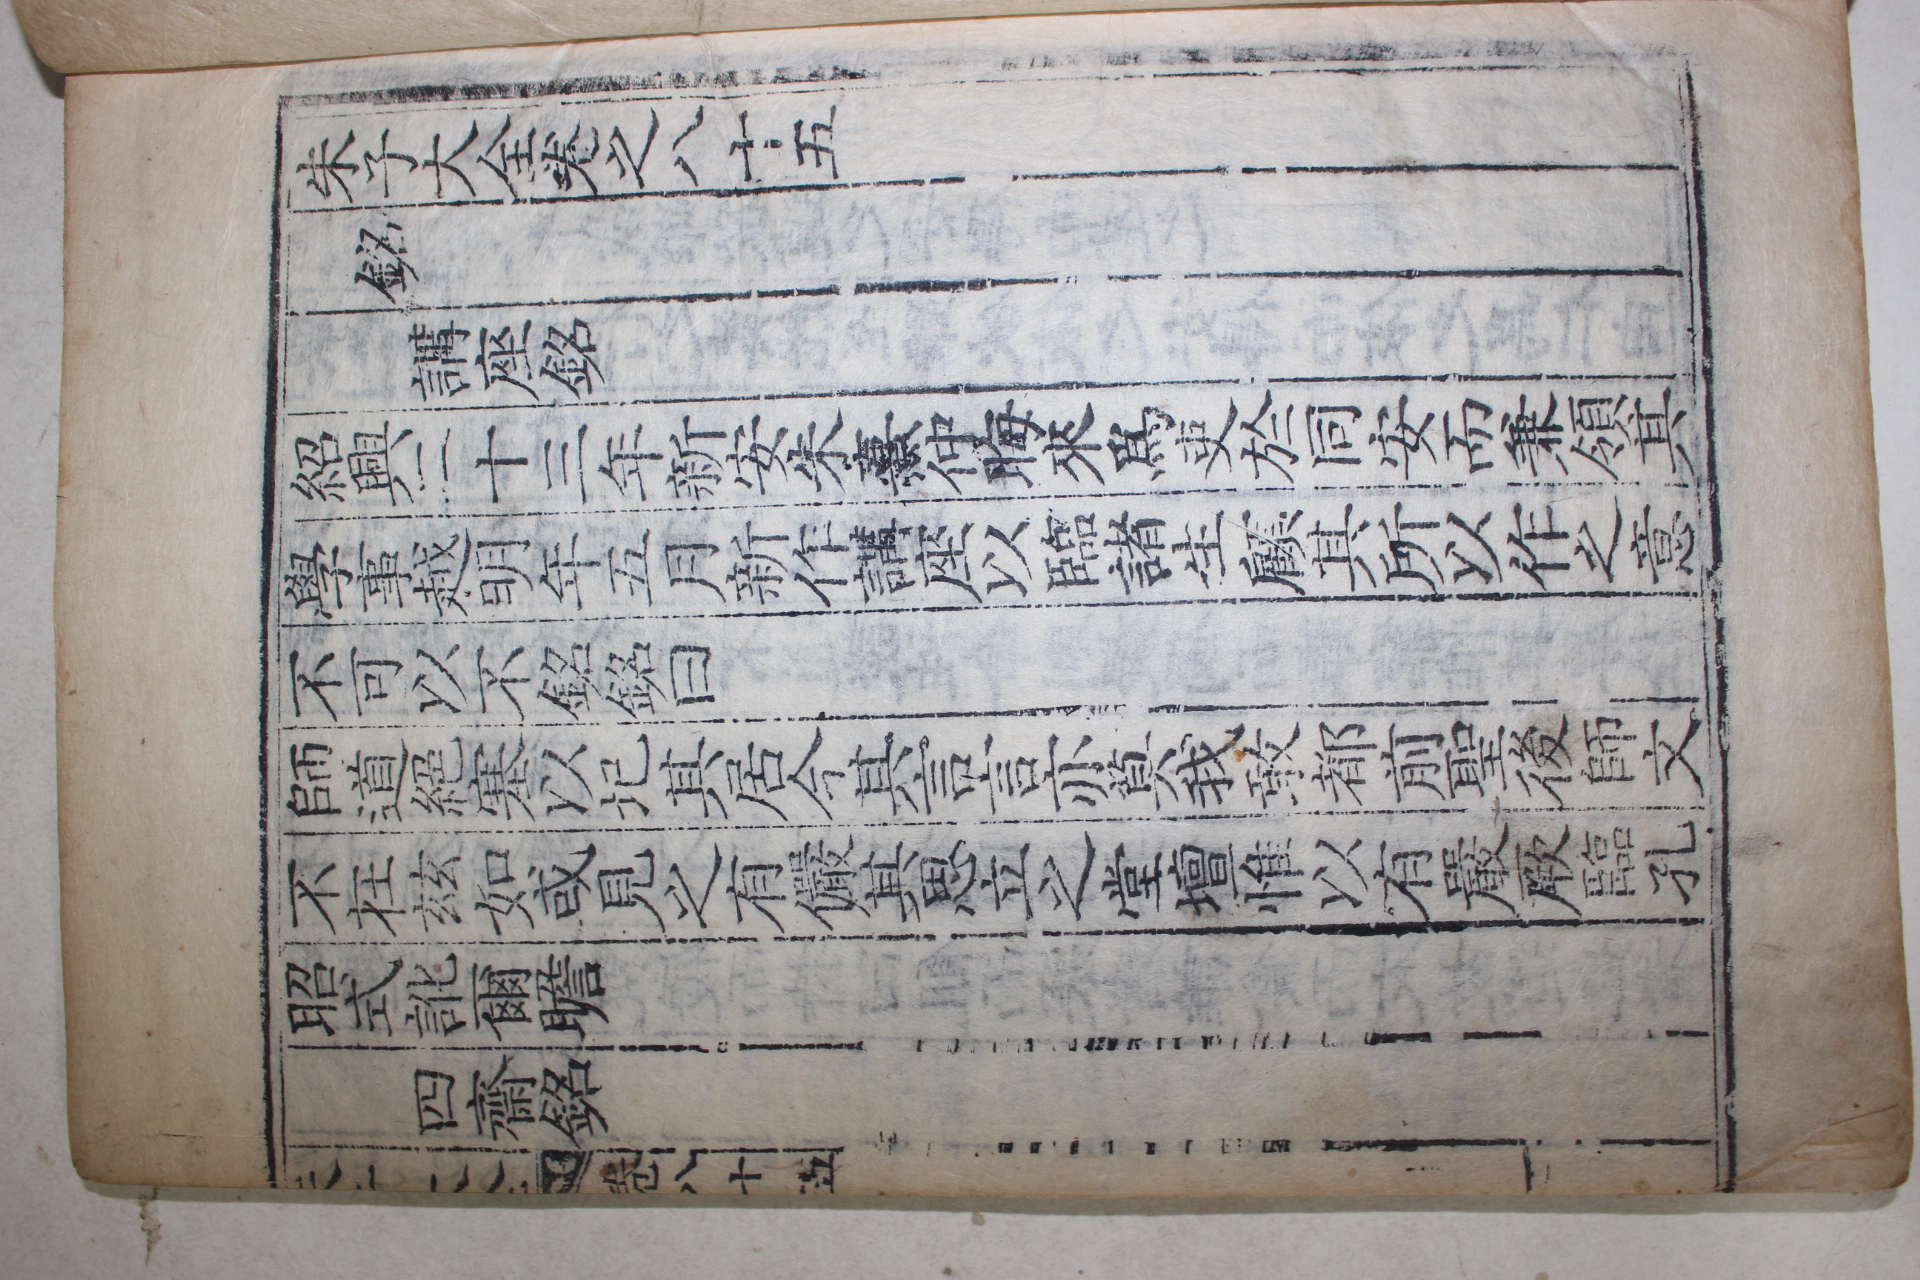 朱子大全卷之八十五
銘
講座銘
紹興二十三年新安朱熹仲晦來爲吏於同安而兼領其
學事越明年五月新作講座以臨諸生顧其所以作之意
不可以不銘銘曰
師道絕塞以圮其居今其言言亦莫我敢都前聖後師文
不在玆如或見之有儼其思立之堂壇惟以有嚴厥臨孔
昭式訛爾瞻
四齋銘
卷八十五